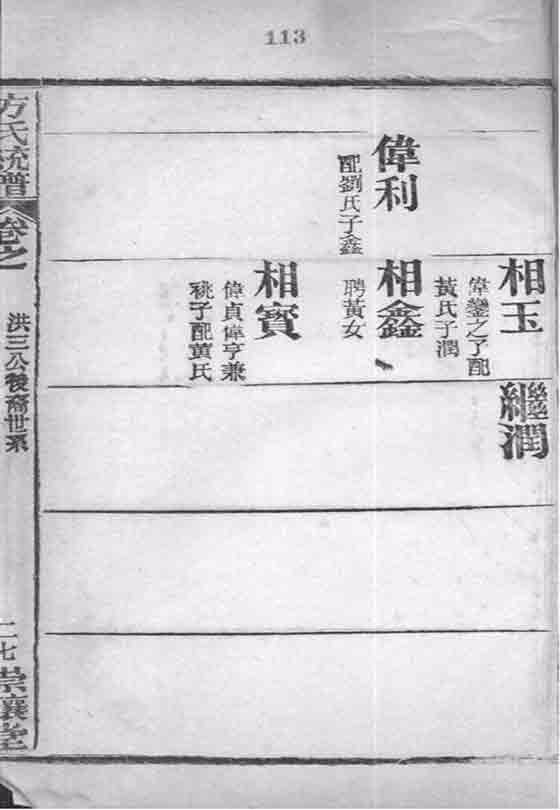 113
偉利
配劉氏子鑫
相玉
偉鑾之子配
黃氏子潤
相鑫
聘黃女
相寳
偉貞偉亨兼
祧子配黃氏
繼潤
方氏統譜
卷之一
洪三公後裔世系
二七
崇讓堂